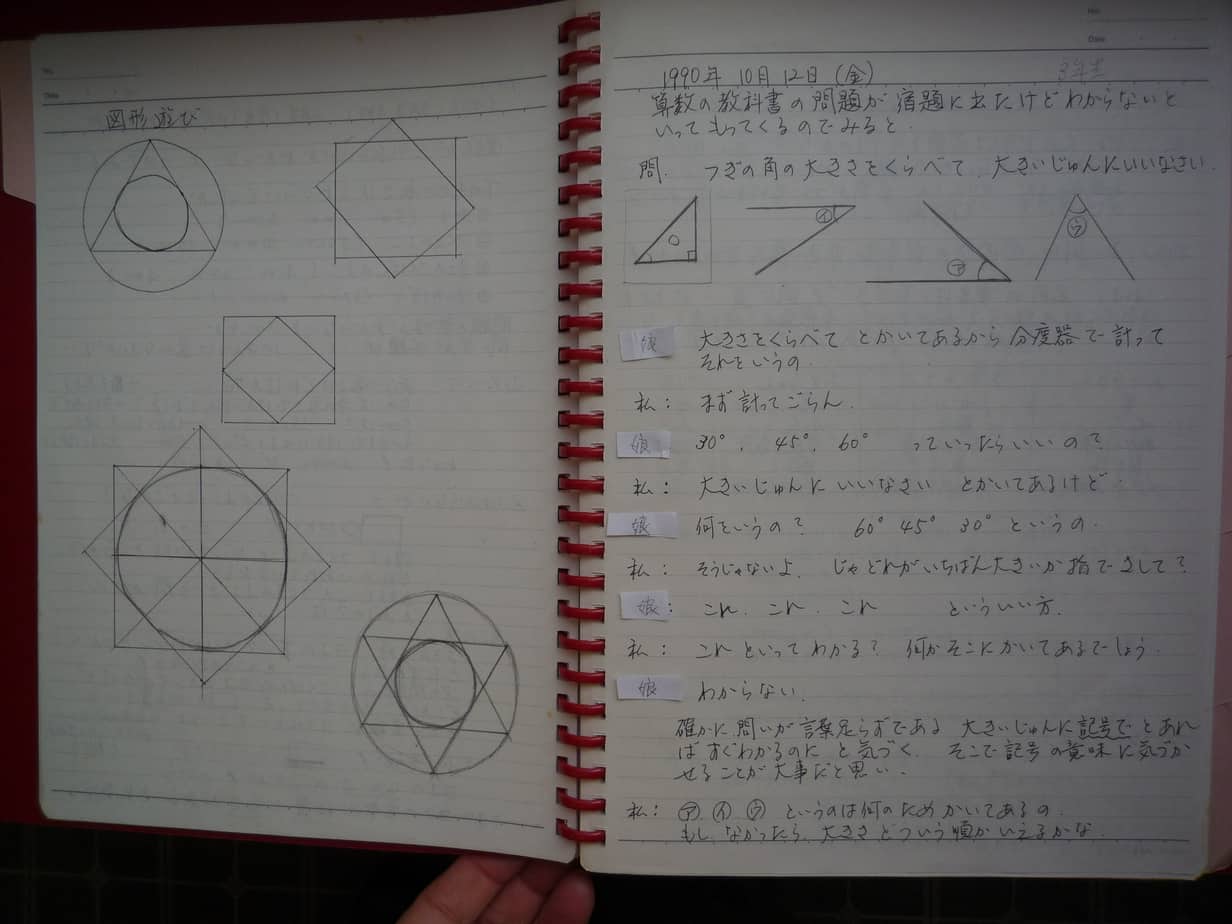 No.
Date
図形遊び
No.
Date
1990年 10月 12日 (金)
3年生
算数の教科書の問題が宿題に出たけどわからないと
いってもってくるのでみると、
問. つぎの角の大きさをくらべて、大きいじゅんにいいなさい.
㋑
㋐
㋒
娘 大きさをくらべて とかいてあるから 分度器で計って
それをいうの.
私: まず計ってごらん.
娘 30°, 45°, 60° っていったらいいの?
私: 大きいじゅんに いいなさい とかいてあるけど.
娘 何をいうの? 60° 45° 30° というの.
私: そうじゃないよ. じゃどれがいちばん大きいか指でさして?
娘: これ. これ. これ といういい方.
私: これ といって わかる? 何かそこにかいてあるでしょう.
娘 わからない.
確かに問いが言葉足らずである 大きいじゅんに記号で とあれ
ば すぐわかるのに と気づく. そこで記号の意味に気づか
せることが大事だと思い.
私: ㋐ ㋑ ㋒ というのは何のためかいてあるの.
もし、なかったら、大きさ どういう順かいえるかな.